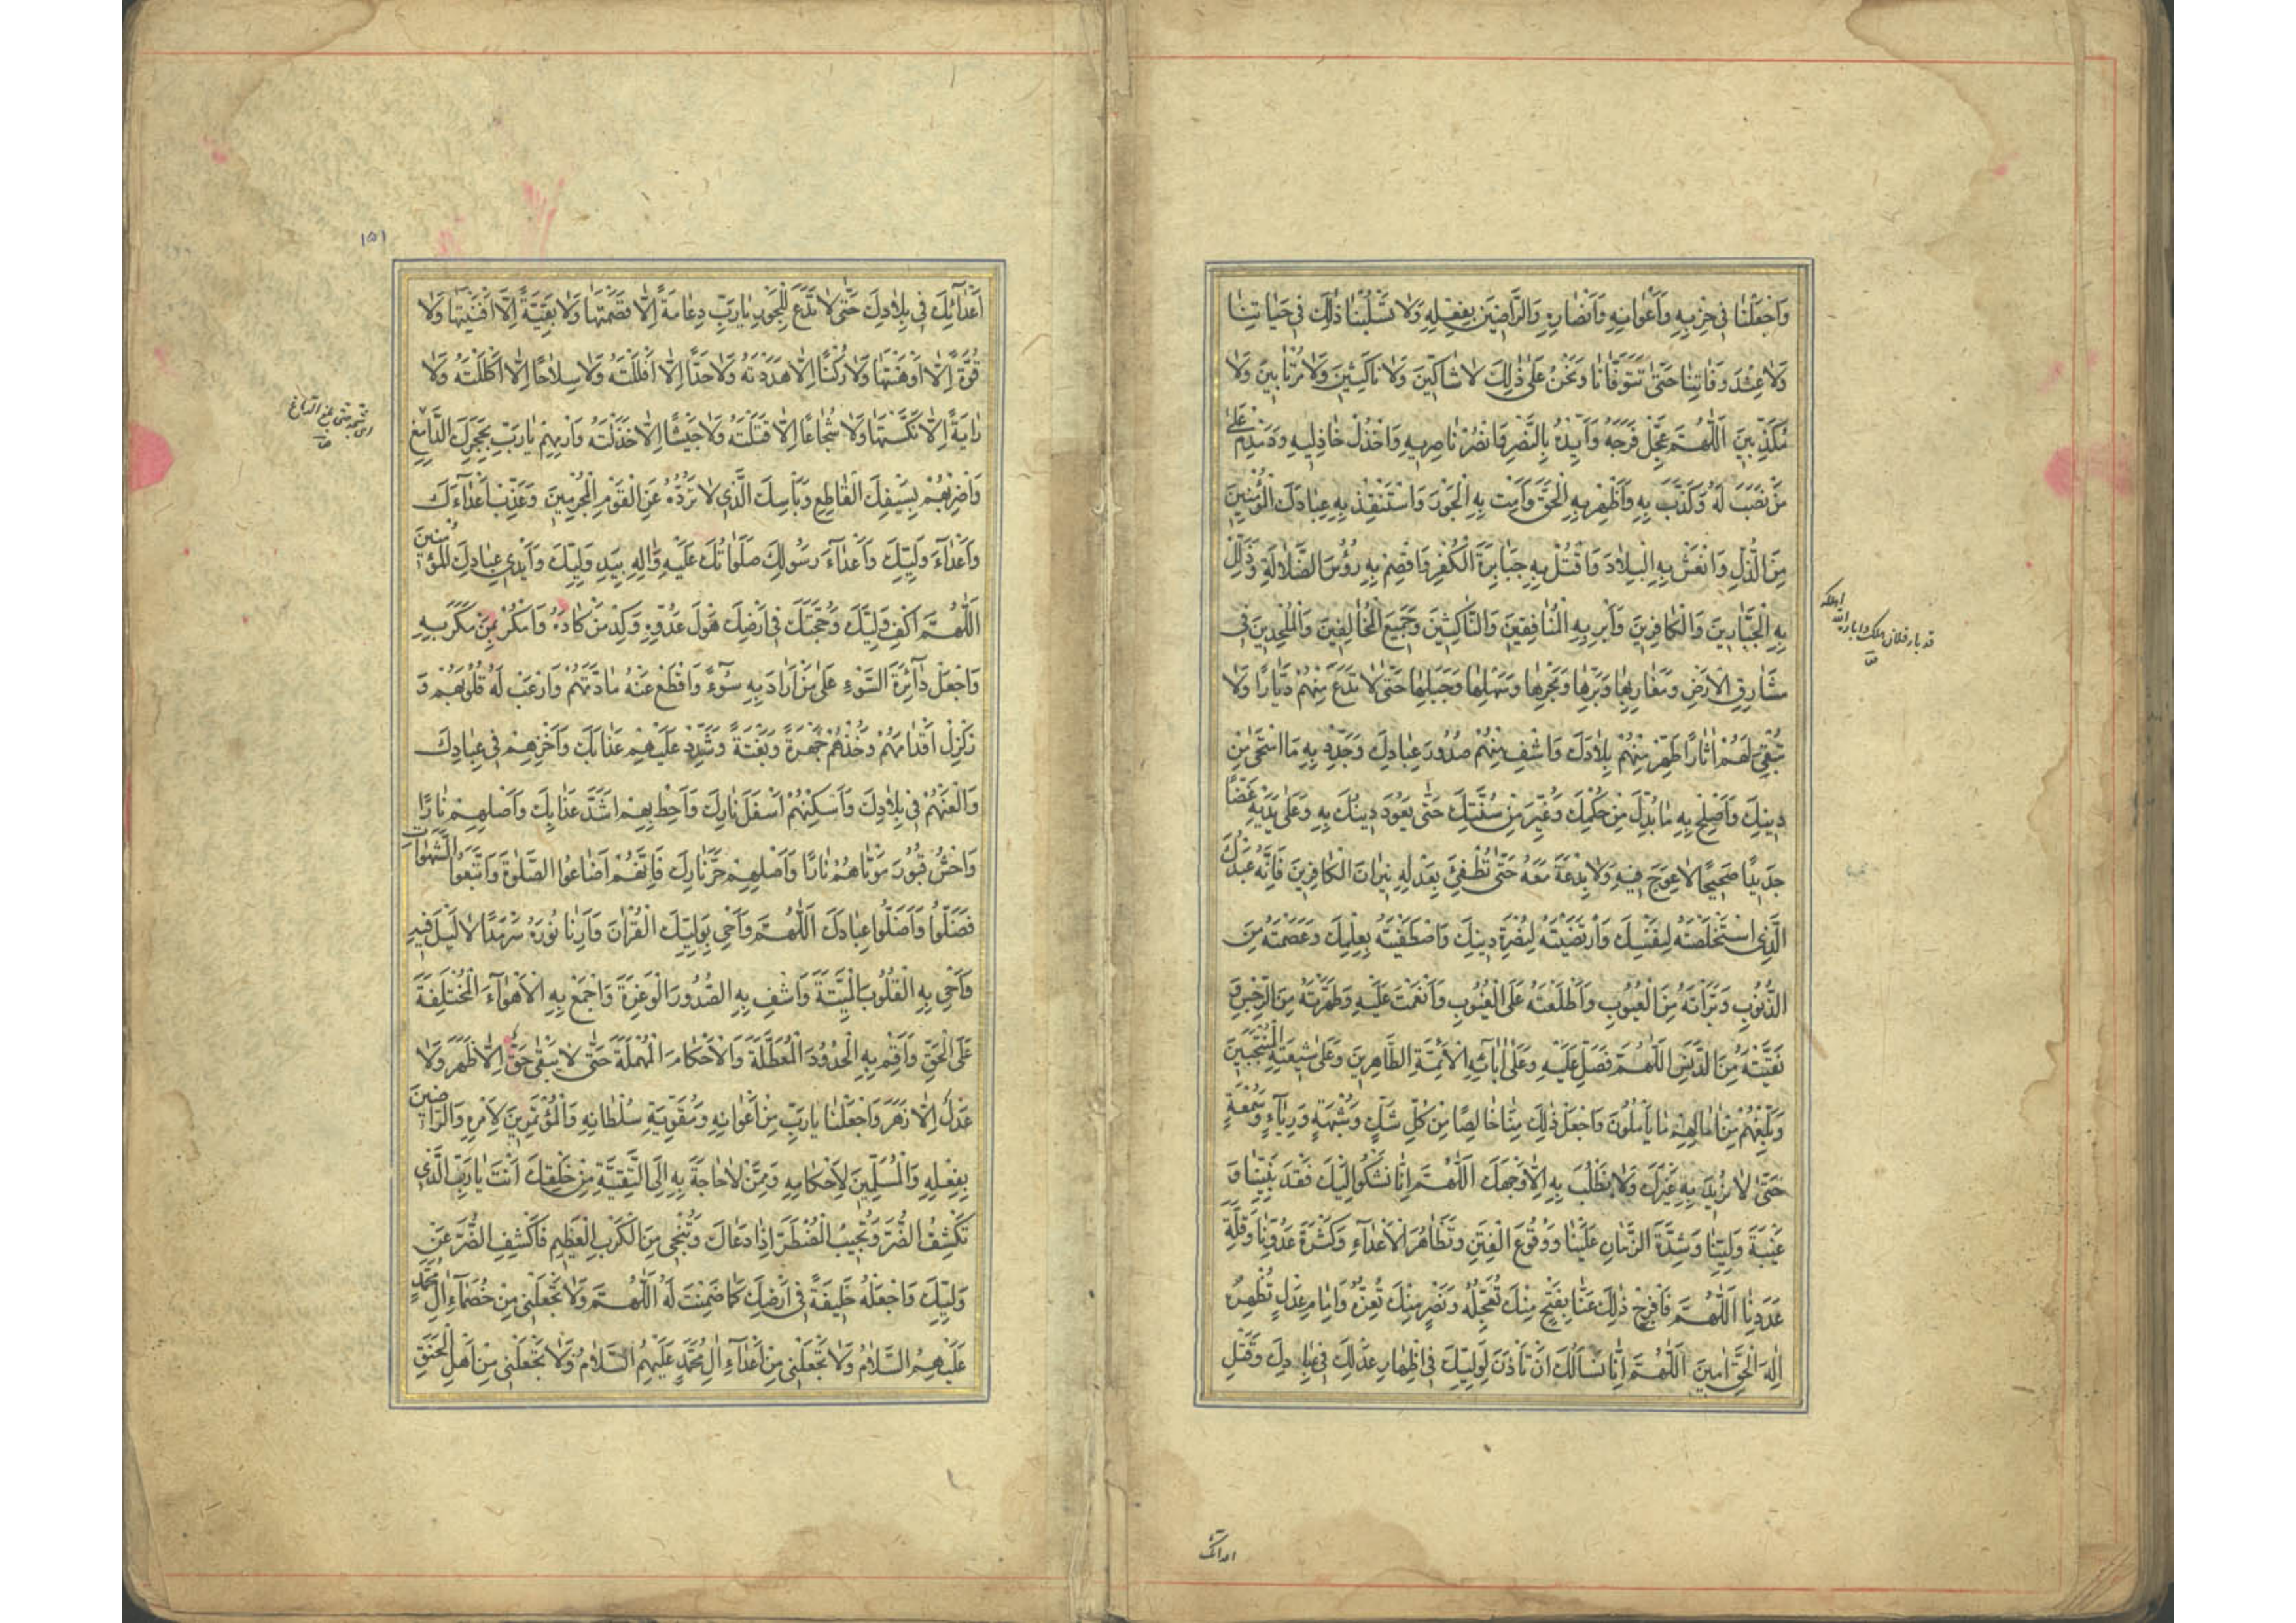 وَاجْعَلْنَا فِي حِزْبِهِ وَأَعْوَانِهِ وَأَنْصَارِهِ وَالرَّاضِينَ بِفِعْلِهِ وَلَا تَسْلُبْنَا ذٰلِكَ فِي حَيَاتِنَا
وَلَا عِنْدَ وَفَاتِنَا حَتَّى تَتَوَفَّانَا وَنَحْنُ عَلَى ذٰلِكَ لَا شَاكِّينَ وَلَا نَاكِثِينَ وَلَا مُرْتَابِينَ وَلَا
مُكَذِّبِينَ اَللّٰهُمَّ عَجِّلْ فَرَجَهُ وَأَيِّدْهُ بِالنَّصْرِ وَانْصُرْ نَاصِرِيهِ وَاخْذُلْ خَاذِلِيهِ وَدَمْدِمْ عَلَى
مَنْ نَصَبَ لَهُ وَكَذَّبَ بِهِ وَأَظْهِرْ بِهِ الْحَقَّ وَأَمِتْ بِهِ الْجَوْرَ وَاسْتَنْقِذْ بِهِ عِبَادَكَ الْمُؤْمِنِينَ
مِنَ الذُّلِّ وَانْعَشْ بِهِ الْبِلَادَ وَاقْتُلْ بِهِ جَبَابِرَةَ الْكُفْرِ وَاقْصِمْ بِهِ رُؤُسَ الضَّلَالَةِ وَذَلِّلْ
بِهِ الْجَبَّارِينَ وَالْكَافِرِينَ وَأَبِرْ بِهِ الْمُنَافِقِينَ وَالنَّاكِثِينَ وَجَمِيعَ الْمُخَالِفِينَ وَالْمُلْحِدِينَ فِي
مَشَارِقِ الْأَرْضِ وَمَغَارِبِهَا وَبَرِّهَا وَبَحْرِهَا وَسَهْلِهَا وَجَبَلِهَا حَتَّى لَا تَدَعَ مِنْهُمْ دَيَّارًا وَلَا
تُبْقِيَ لَهُمْ اٰثَارًا طَهِّرْ مِنْهُمْ بِلَادَكَ وَاشْفِ مِنْهُمْ صُدُورَ عِبَادِكَ وَجَدِّدْ بِهِ مَا امْتَحَى مِنْ
دِينِكَ وَأَصْلِحْ بِهِ مَا بُدِّلَ مِنْ حُكْمِكَ وَغُيِّرَ مِنْ سُنَّتِكَ حَتَّى يَعُودَ دِينُكَ بِهِ وَعَلَى يَدَيْهِ غَضًّا
جَدِيدًا صَحِيحًا لَا عِوَجَ فِيهِ وَلَا بِدْعَةَ مَعَهُ حَتَّى تُطْفِئَ بِعَدْلِهِ نِيرَانَ الْكَافِرِينَ فَإِنَّهُ عَبْدُكَ
الَّذِي اسْتَخْلَصْتَهُ لِنَفْسِكَ وَارْتَضَيْتَهُ لِنُصْرَةِ دِينِكَ وَاصْطَفَيْتَهُ بِعِلْمِكَ وَعَصَمْتَهُ مِنَ
الذُّنُوبِ وَبَرَّأْتَهُ مِنَ الْعُيُوبِ وَأَطْلَعْتَهُ عَلَى الْغُيُوبِ وَأَنْعَمْتَ عَلَيْهِ وَطَهَّرْتَهُ مِنَ الرِّجْسِ وَ
نَقَّيْتَهُ مِنَ الدَّنَسِ اَللّٰهُمَّ فَصَلِّ عَلَيْهِ وَعَلَى اٰبَائِهِ الْأَئِمَّةِ الطَّاهِرِينَ وَعَلَى شِيعَتِهِ الْمُنْتَجَبِينَ
وَبَلِّغْهُمْ مِنْ اٰمَالِهِمْ مَا يَأْمُلُونَ وَاجْعَلْ ذٰلِكَ مِنَّا خَالِصًا مِنْ كُلِّ شَكٍّ وَشُبْهَةٍ وَرِيَاءٍ وَسُمْعَةٍ
حَتَّى لَا نُرِيدَ بِهِ غَيْرَكَ وَلَا نَطْلُبَ بِهِ إِلَّا وَجْهَكَ اَللّٰهُمَّ إِنَّا نَشْكُو إِلَيْكَ فَقْدَ نَبِيِّنَا وَ
غَيْبَةَ وَلِيِّنَا وَشِدَّةَ الزَّمَانِ عَلَيْنَا وَوُقُوعَ الْفِتَنِ وَتَظَاهُرَ الْأَعْدَاءِ وَكَثْرَةَ عَدُوِّنَا وَقِلَّةَ
عَدَدِنَا اَللّٰهُمَّ فَافْرُجْ ذٰلِكَ عَنَّا بِفَتْحٍ مِنْكَ تُعَجِّلُهُ وَنَصْرٍ مِنْكَ تُعِزُّهُ وَإِمَامِ عَدْلٍ تُظْهِرُهُ
إِلٰهَ الْحَقِّ اٰمِينَ اَللّٰهُمَّ إِنَّا نَسْأَلُكَ أَنْ تَأْذَنَ لِوَلِيِّكَ فِي إِظْهَارِ عَدْلِكَ فِي عِبَادِكَ وَقَتْلِ
اعدائک
١٥١
أَعْدَائِكَ فِي بِلَادِكَ حَتَّى لَا تَدَعَ لِلْجَوْرِ يَا رَبِّ دِعَامَةً إِلَّا قَصَمْتَهَا وَلَا بَقِيَّةً إِلَّا أَفْنَيْتَهَا وَلَا
قُوَّةً إِلَّا أَوْهَنْتَهَا وَلَا رُكْنًا إِلَّا هَدَدْتَهُ وَلَا حَدًّا إِلَّا أَفْلَلْتَهُ وَلَا سِلَاحًا إِلَّا أَكْلَلْتَهُ وَلَا
رَايَةً إِلَّا نَكَّسْتَهَا وَلَا شُجَاعًا إِلَّا قَتَلْتَهُ وَلَا جَيْشًا إِلَّا خَذَلْتَهُ وَارْمِهِمْ يَا رَبِّ بِحَجَرِكَ الدَّامِغِ
وَاضْرِبْهُمْ بِسَيْفِكَ الْقَاطِعِ وَبَأْسِكَ الَّذِي لَا تَرُدُّهُ عَنِ الْقَوْمِ الْمُجْرِمِينَ وَعَذِّبْ أَعْدَاءَكَ
وَأَعْدَاءَ وَلِيِّكَ وَأَعْدَاءَ رَسُولِكَ صَلَوَاتُكَ عَلَيْهِ وَاٰلِهِ بِيَدِ وَلِيِّكَ وَأَيْدِي عِبَادِكَ الْمُؤْمِنِينَ
اَللّٰهُمَّ اكْفِ وَلِيَّكَ وَحُجَّتَكَ فِي أَرْضِكَ هَوْلَ عَدُوِّهِ وَكِدْ مَنْ كَادَهُ وَامْكُرْ مَنْ مَكَرَ بِهِ
وَاجْعَلْ دَائِرَةَ السَّوْءِ عَلَى مَنْ أَرَادَ بِهِ سُوْءً وَاقْطَعْ عَنْهُ مَادَّتَهُمْ وَارْعَبْ لَهُ قُلُوبَهُمْ وَ
زَلْزِلْ أَقْدَامَهُمْ وَخُذْهُمْ جَهْرَةً وَبَغْتَةً وَشَدِّدْ عَلَيْهِمْ عَذَابَكَ وَأَخْزِهِمْ فِي عِبَادِكَ
وَالْعَنْهُمْ فِي بِلَادِكَ وَأَسْكِنْهُمْ أَسْفَلَ نَارِكَ وَأَحِطْ بِهِمْ أَشَدَّ عَذَابِكَ وَأَصْلِهِمْ نَارًا
وَاحْشُ قُبُورَ مَوْتَاهُمْ نَارًا وَأَصْلِهِمْ حَرَّ نَارِكَ فَإِنَّهُمْ أَضَاعُوا الصَّلٰوةَ وَاتَّبَعُوا الشَّهَوَاتِ
فَضَلُّوا وَأَضَلُّوا عِبَادَكَ اَللّٰهُمَّ وَأَحْيِ بِوَلِيِّكَ الْقُرْاٰنَ وَأَرِنَا نُورَهُ سَرْمَدًا لَا لَيْلَ فِيهِ
وَأَحْيِ بِهِ الْقُلُوبَ الْمَيِّتَةَ وَاشْفِ بِهِ الصُّدُورَ الْوَغِرَةَ وَاجْمَعْ بِهِ الْأَهْوَاءَ الْمُخْتَلِفَةَ
عَلَى الْحَقِّ وَأَقِمْ بِهِ الْحُدُودَ الْمُعَطَّلَةَ وَالْأَحْكَامَ الْمُهْمَلَةَ حَتَّى لَا يَبْقَى حَقٌّ إِلَّا ظَهَرَ وَلَا
عَدْلٌ إِلَّا زَهَرَ وَاجْعَلْنَا يَا رَبِّ مِنْ أَعْوَانِهِ وَمُقَوِّيَةِ سُلْطَانِهِ وَالْمُؤْتَمِرِينَ لِأَمْرِهِ وَالرَّاضِينَ
بِفِعْلِهِ وَالْمُسَلِّمِينَ لِأَحْكَامِهِ وَمِمَّنْ لَا حَاجَةَ بِهِ إِلَى التَّقِيَّةِ مِنْ خَلْقِكَ أَنْتَ يَا رَبِّ الَّذِي
تَكْشِفُ الضُّرَّ وَتُجِيبُ الْمُضْطَرَّ إِذَا دَعَاكَ وَتُنْجِي مِنَ الْكَرْبِ الْعَظِيمِ فَاكْشِفِ الضُّرَّ عَنْ
وَلِيِّكَ وَاجْعَلْهُ خَلِيفَةً فِي أَرْضِكَ كَمَا ضَمِنْتَ لَهُ اَللّٰهُمَّ وَلَا تَجْعَلْنِي مِنْ خُصَمَاءِ اٰلِ مُحَمَّدٍ
عَلَيْهِمُ السَّلَامُ وَلَا تَجْعَلْنِي مِنْ أَعْدَاءِ اٰلِ مُحَمَّدٍ عَلَيْهِمُ السَّلَامُ وَلَا تَجْعَلْنِي مِنْ أَهْلِ الْحَنَقِ